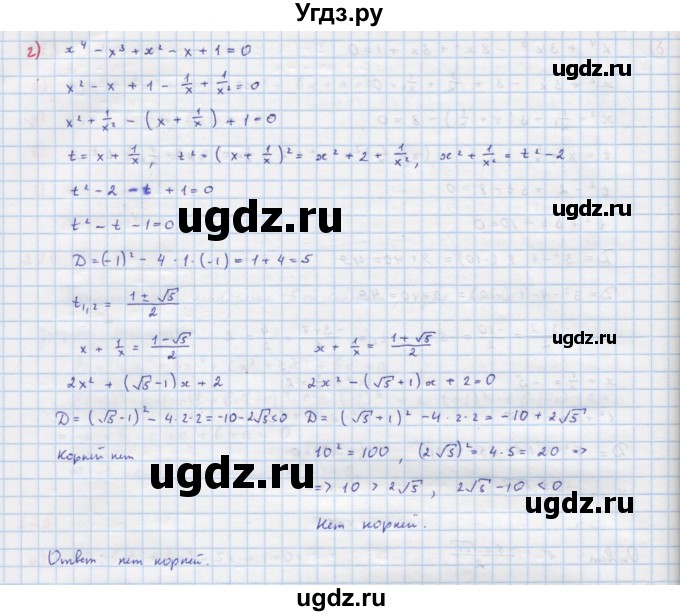 Угдз.ру
2) x⁴ - x³ + x² - x + 1 = 0
ugdz.ru
x² - x + 1 - 1/x + 1/x² = 0
x² + 1/x² - (x + 1/x) + 1 = 0
ugdz.ru
t = x + 1/x; t² = (x + 1/x)² = x² + 2 + 1/x², x² + 1/x² = t² - 2
t² - 2 - t + 1 = 0
ugdz.ru
t² - t - 1 = 0
ugdz.ru
D = (-1)² - 4 · 1 · (-1) = 1 + 4 = 5
t₁,₂ = (1 ± √5)/2
ugdz.ru
x + 1/x = (1-√5)/2 x + 1/x = (1+√5)/2
2x² + (√5-1)x + 2 2x² - (√5+1)x + 2 = 0
D = (√5-1)² - 4·2·2 = -10-2√5<0 D = (√5+1)² - 4·2·2 = -10 + 2√5
ugdz.ru
Корней нет 10² = 100, (2√5)² = 4·5 = 20 =>
ugdz.ru
=> 10 > 2√5, 2√5 - 10 < 0
Нет корней.
Ответ нет корней.
ugdz.ru
Угдз.ру